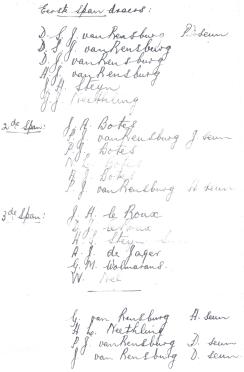 Eerste Span draers:
D. S. J. van Rensburg P. seun
D. J. J. van Rensburg
D. J. van Rensburg
H. J. van Rensburg
J. H. Steyn
J. J. Neethling
2de Span: J. A. Botes
P. J. van Rensburg J. seun
P. J. Botes
Botes
A. J. Botes
P. J. van Rensburg A. seun
3de Span: J. H. le Roux
le Roux
H. S. Steyn
A. J. de Jager
G. M. Wolmarans
W. Nel
C. van Rensburg A. seun
H. L. Neethling
P. J. van Rensburg D. seun
J van Rensburg D. seun